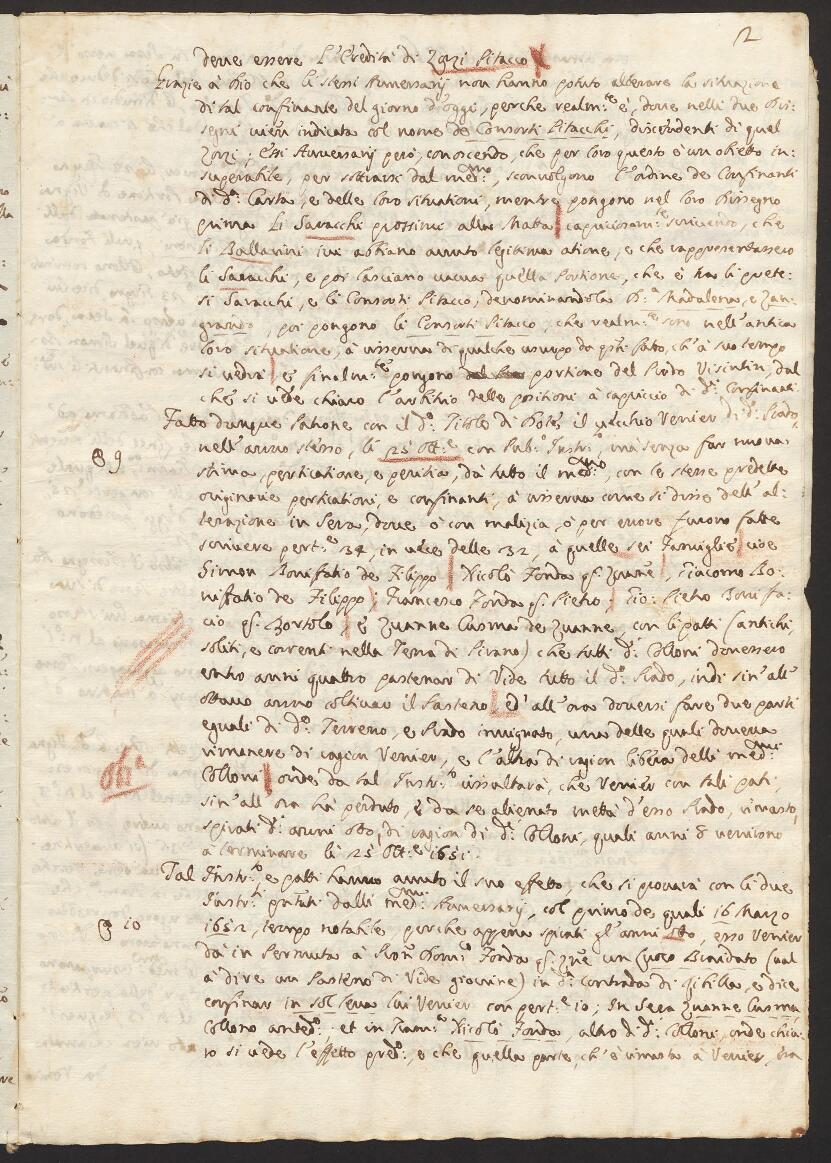 2
deve essere l'Eredità di Zorzi Pitacco
Grazie à Dio che li stessi Auversarij non hanno potuto alterare la situazione
di tal confinante del giorno d'oggi, perche realm.te è, dove nelli due Di:
segni vien indicata col nome de Consorti Pitacchi, discendenti di quel
Zorzi; Essi Auversarij però, conoscendo, che per loro questo è un obietto in:
superabile, per sottrarsi dal med.mo, sconvolgono l'ordine de Confinanti
di d.a Carta, e delle loro situationi, mentre pongono nel loro Dissegno
prima li Saracchi prossimi alla Matta capriciosam.te scrivendo, che
li Ballarini ivi abbiano avuto legitima atione, e che rappresentassero
li Saracchi, e poi lasciano vacua quella Portione, che è tra li prete:
si Saracchi, e li Consorti Pitacco, denominandola D.a Madalena, e Zan:
grando, poi pongono li Consorti Pitacco, che realm.te sono nell'antica
loro situatione, à riserva di qualche usurpo da q.sti fatto, ch'à suo tempo
si vedrà, e finalm.te pongono portione del Prado Visintin, dal
che si vede chiaro l'arbitrio delle positioni à capriccio di d.i Confinanti.
Fatto dunque Patrone con il d.o Titolo di Dote il vecchio Venier di d.o Prado,
nell'anno stesso, li 25 Ott.e con Pub.o Instr.o, mà senza far nuova
89
stima, perticatione, e peritia, dà tutto il med.mo, con le stesse predette
originarie perticationi, e confinanti, à riserva come si disse dell'al:
terazione in Sera, dove ò con malizia, ò per errore furono fatte
scrivere pert.e 34, in vece delle 32, à quelle sei Famiglie cioè
Simon Bonifatio de Filippo Nicolò Fonda q.m Zuane, Giacomo Bo:
nifatio de Filippo, Francesco Fonda q.m Pietro, Gio: Pietro Bonifa:
cio q.m Bortolo e Zuanne Cusma de Zuanne, con li patti (antichi,
soliti, e correnti nella Terra di Pirano) che tutti d.i Colloni dovessero
entro anni quattro pastenar di Vide tutto il d.o Prado, indi sin'all'
ottavo anno coltivar il Pasteno ed'all'ora doversi fare due parti
eguali di d.o Terreno, e Prado invignato, una delle quali doveva
rimanere di ragion Venier, e l'altra di ragion libera delli med.mi
Colloni onde da tal Instr.o rissultarà, che Venier con tali pati,
sin'all'ora hà perduto, e da se alienato mettà d'esso Prado, rimasto,
spirati d.i anni otto, di ragion di d.i Colloni, quali anni 8 veniron
à terminare li 25 Ott.e 1651.
Tal Instr.o e patti hanno avuto il suo effetto, che si provarà con li due
Instr.ti p.ntati dalli med.mi Auversarij, col primo de quali 16 Marzo
10
1652, tempo notabile, perche appena spirati gl'anni otto, esso Venier
dà in Permuta à Fonda q.m Zne un Cuoco Binidato (val
à dire un Pasteno di Vide giovine) in d.a contrada di e dice
confinar in Sol leva lui Venier con pert.e 10; In Sera Zuanne Cusma
Collono anted.o et in Tram.o Nicolò Fonda, altro di d.i Colloni, onde chia:
ro si vede l'effetto pred.o, e che quella parte, ch'è rimasta à Venier, era